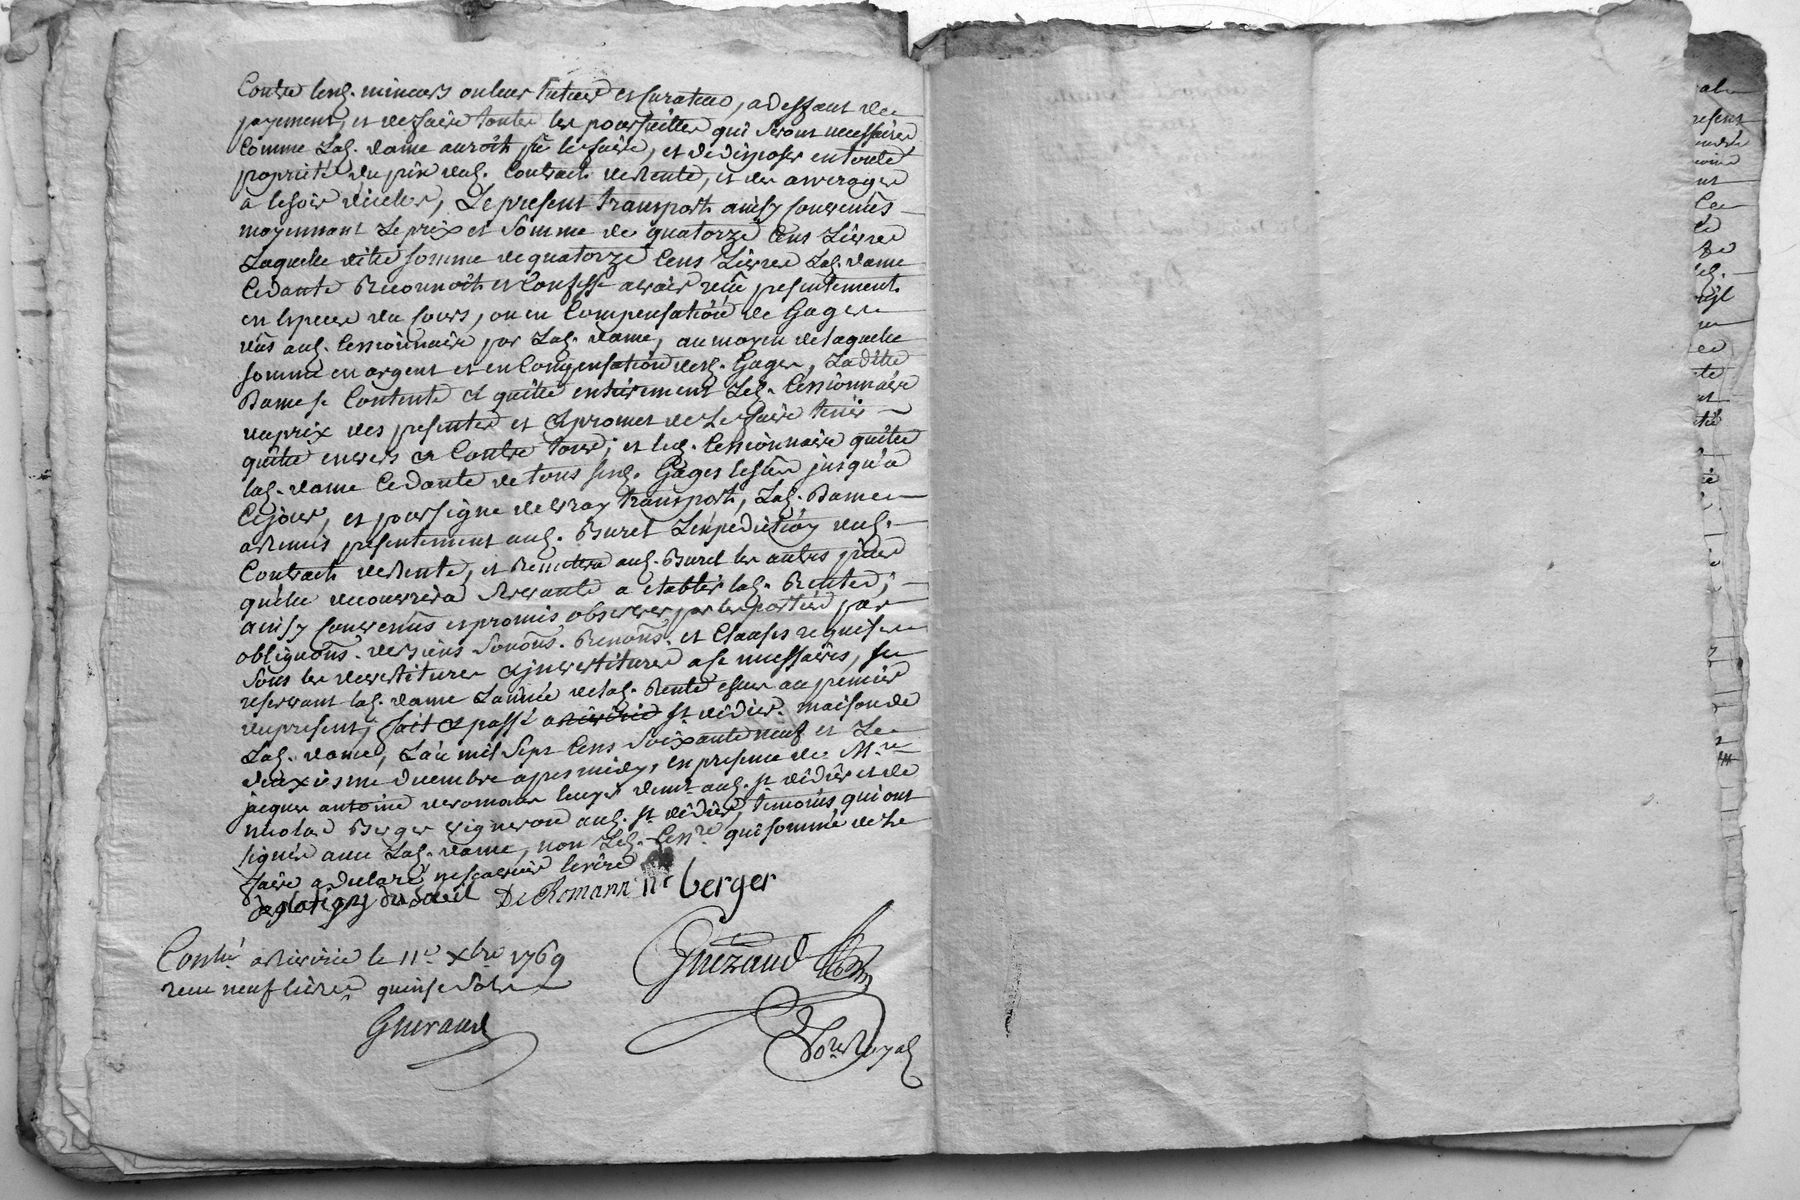 Contre lesd. mineurs ou leur tuteur et curateur, a deffaut de
payement, et de faire toutes les poursuittes qui seront necessaires
Comme Lad. dame auroit pû le faire, et de disposer en toute
proprieté du prix dud. Contract de Rente, et des arrerages
a le soir d'icelles, Le present transport ainsy Convenus
moyennant Le prix et Somme de quatorze Cens Livres
Laquelle ditte somme de quatorze Cens Livres Lad. dame
Cedante Reconnoit et Confesse avoir reçû presentement
en especes du Cours, ou en Compensation de Gages
dûs aud. Cessionnaire par Lad. dame, au moyen de laquelle
somme en argent et en Compensation desd. Gages, Laditte
Dame se Contente et quitte entierement Led. Cessionnaire
du prix des presentes et et promet de Le faire tenir
quitte envers et Contre tous; et led. Cessionnaire quitte
lad. dame Cedante de tous sesd. Gages jusqu'a
Ce jour, et pour signe de vray transport, Lad. Dame
a Remis presentement aud. Buret L'expedition dud.
Contract de Rente, et Remettra aud. Buret les autres pieces
qu'elle recouvrera Servante a etablir lad. Rente;
ainsy Convenus et promis observer par les parties par
obligaõns. de biens Soumõns. Renonõns. et Clauses requises
sous les devestitures et jnvestitures a ce necessaires, se
reservant lad. dame L'année de lad. Rente au premier
du present, fait et passé a riverie St. didier. maison de
Lad. dame, L'an mil Sept Cens Soixante neuf et Le
deuxiesme decembre apres midy, en presence de Mre.
jacques antoine deromans demt. aud. St. didier et de
nicolas Berger vigneron aud. St. didier, temoins qui ont
signés avec Lad. dame, non Led. Cessre. qui sommé de Le
faire a declaré ne sçavoir Ecrire
De Romans nc berger
Conlé. a Riverie le 11e. Xbre 1769
reçu neuf livres quinse sols
Gueraud
Guezaud
No.re Royal